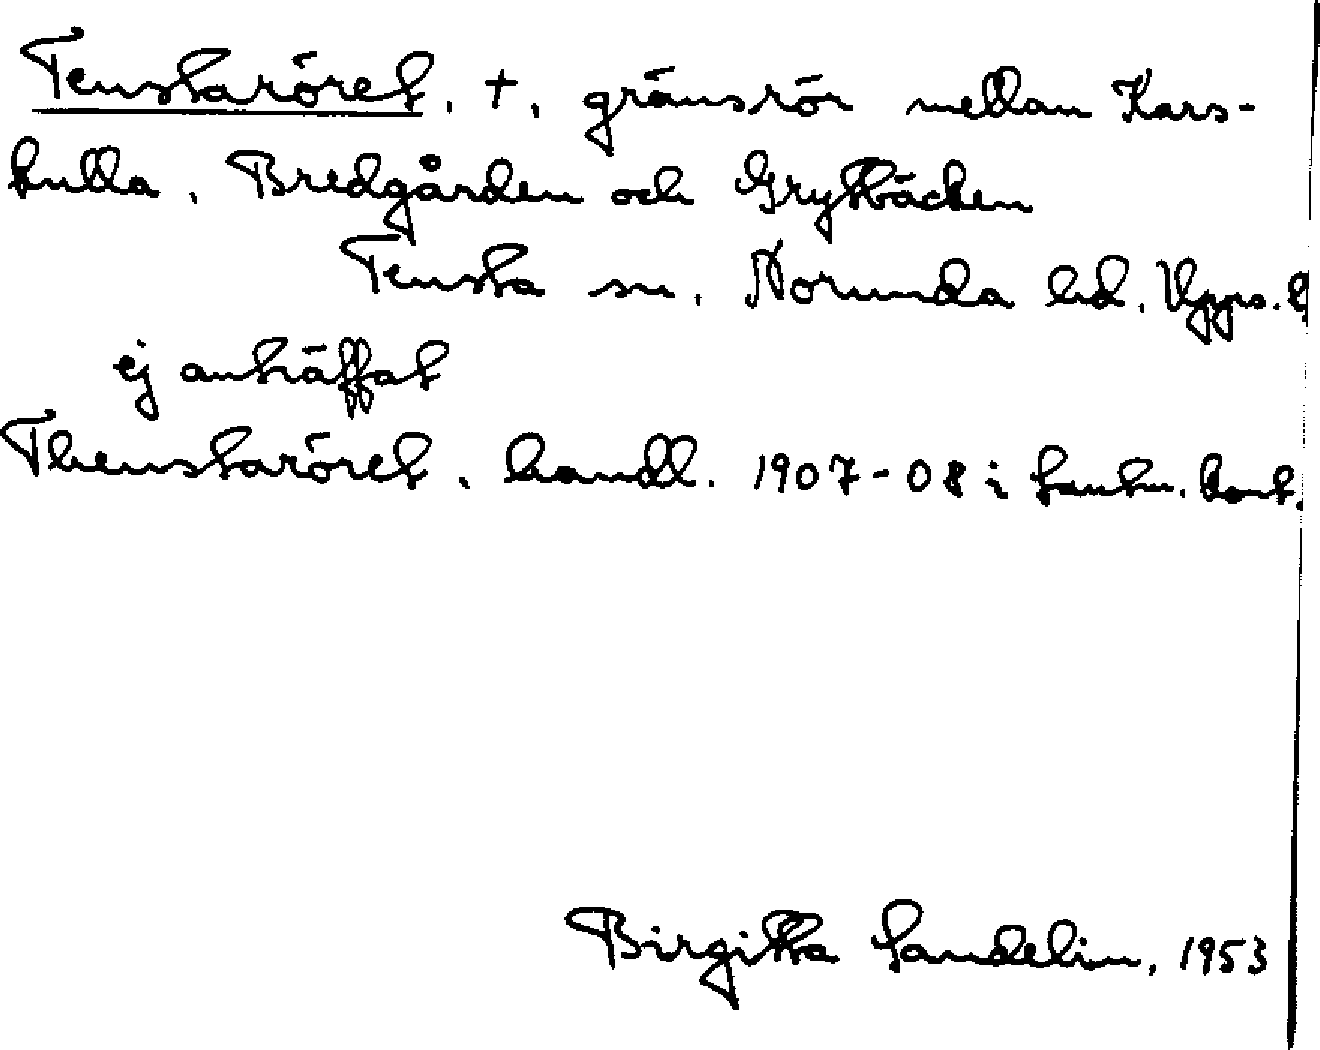 Tenstaröret, +, gränsrör mellan Kars-
tulla, Bredgården och Grytbäcken
Tensta sn, Norunda hd, Upps. l
ej anträffat
Thenstaröret, handl. 1907-08 i Lantm. kont.
Birgitta Sandelin, 1953